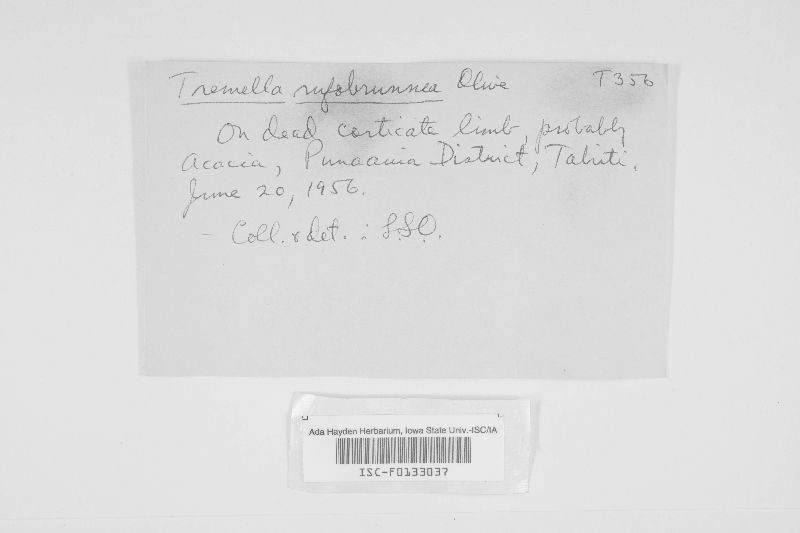 Tremella rufobrunnea Olive T356
On dead corticate limb, probably
Acacia, Punaauia District, Tahiti.
June 20, 1956.
- Coll. & det. : L.S.O.
Ada Hayden Herbarium, Iowa State Univ.-ISC/IA
ISC-F0133037